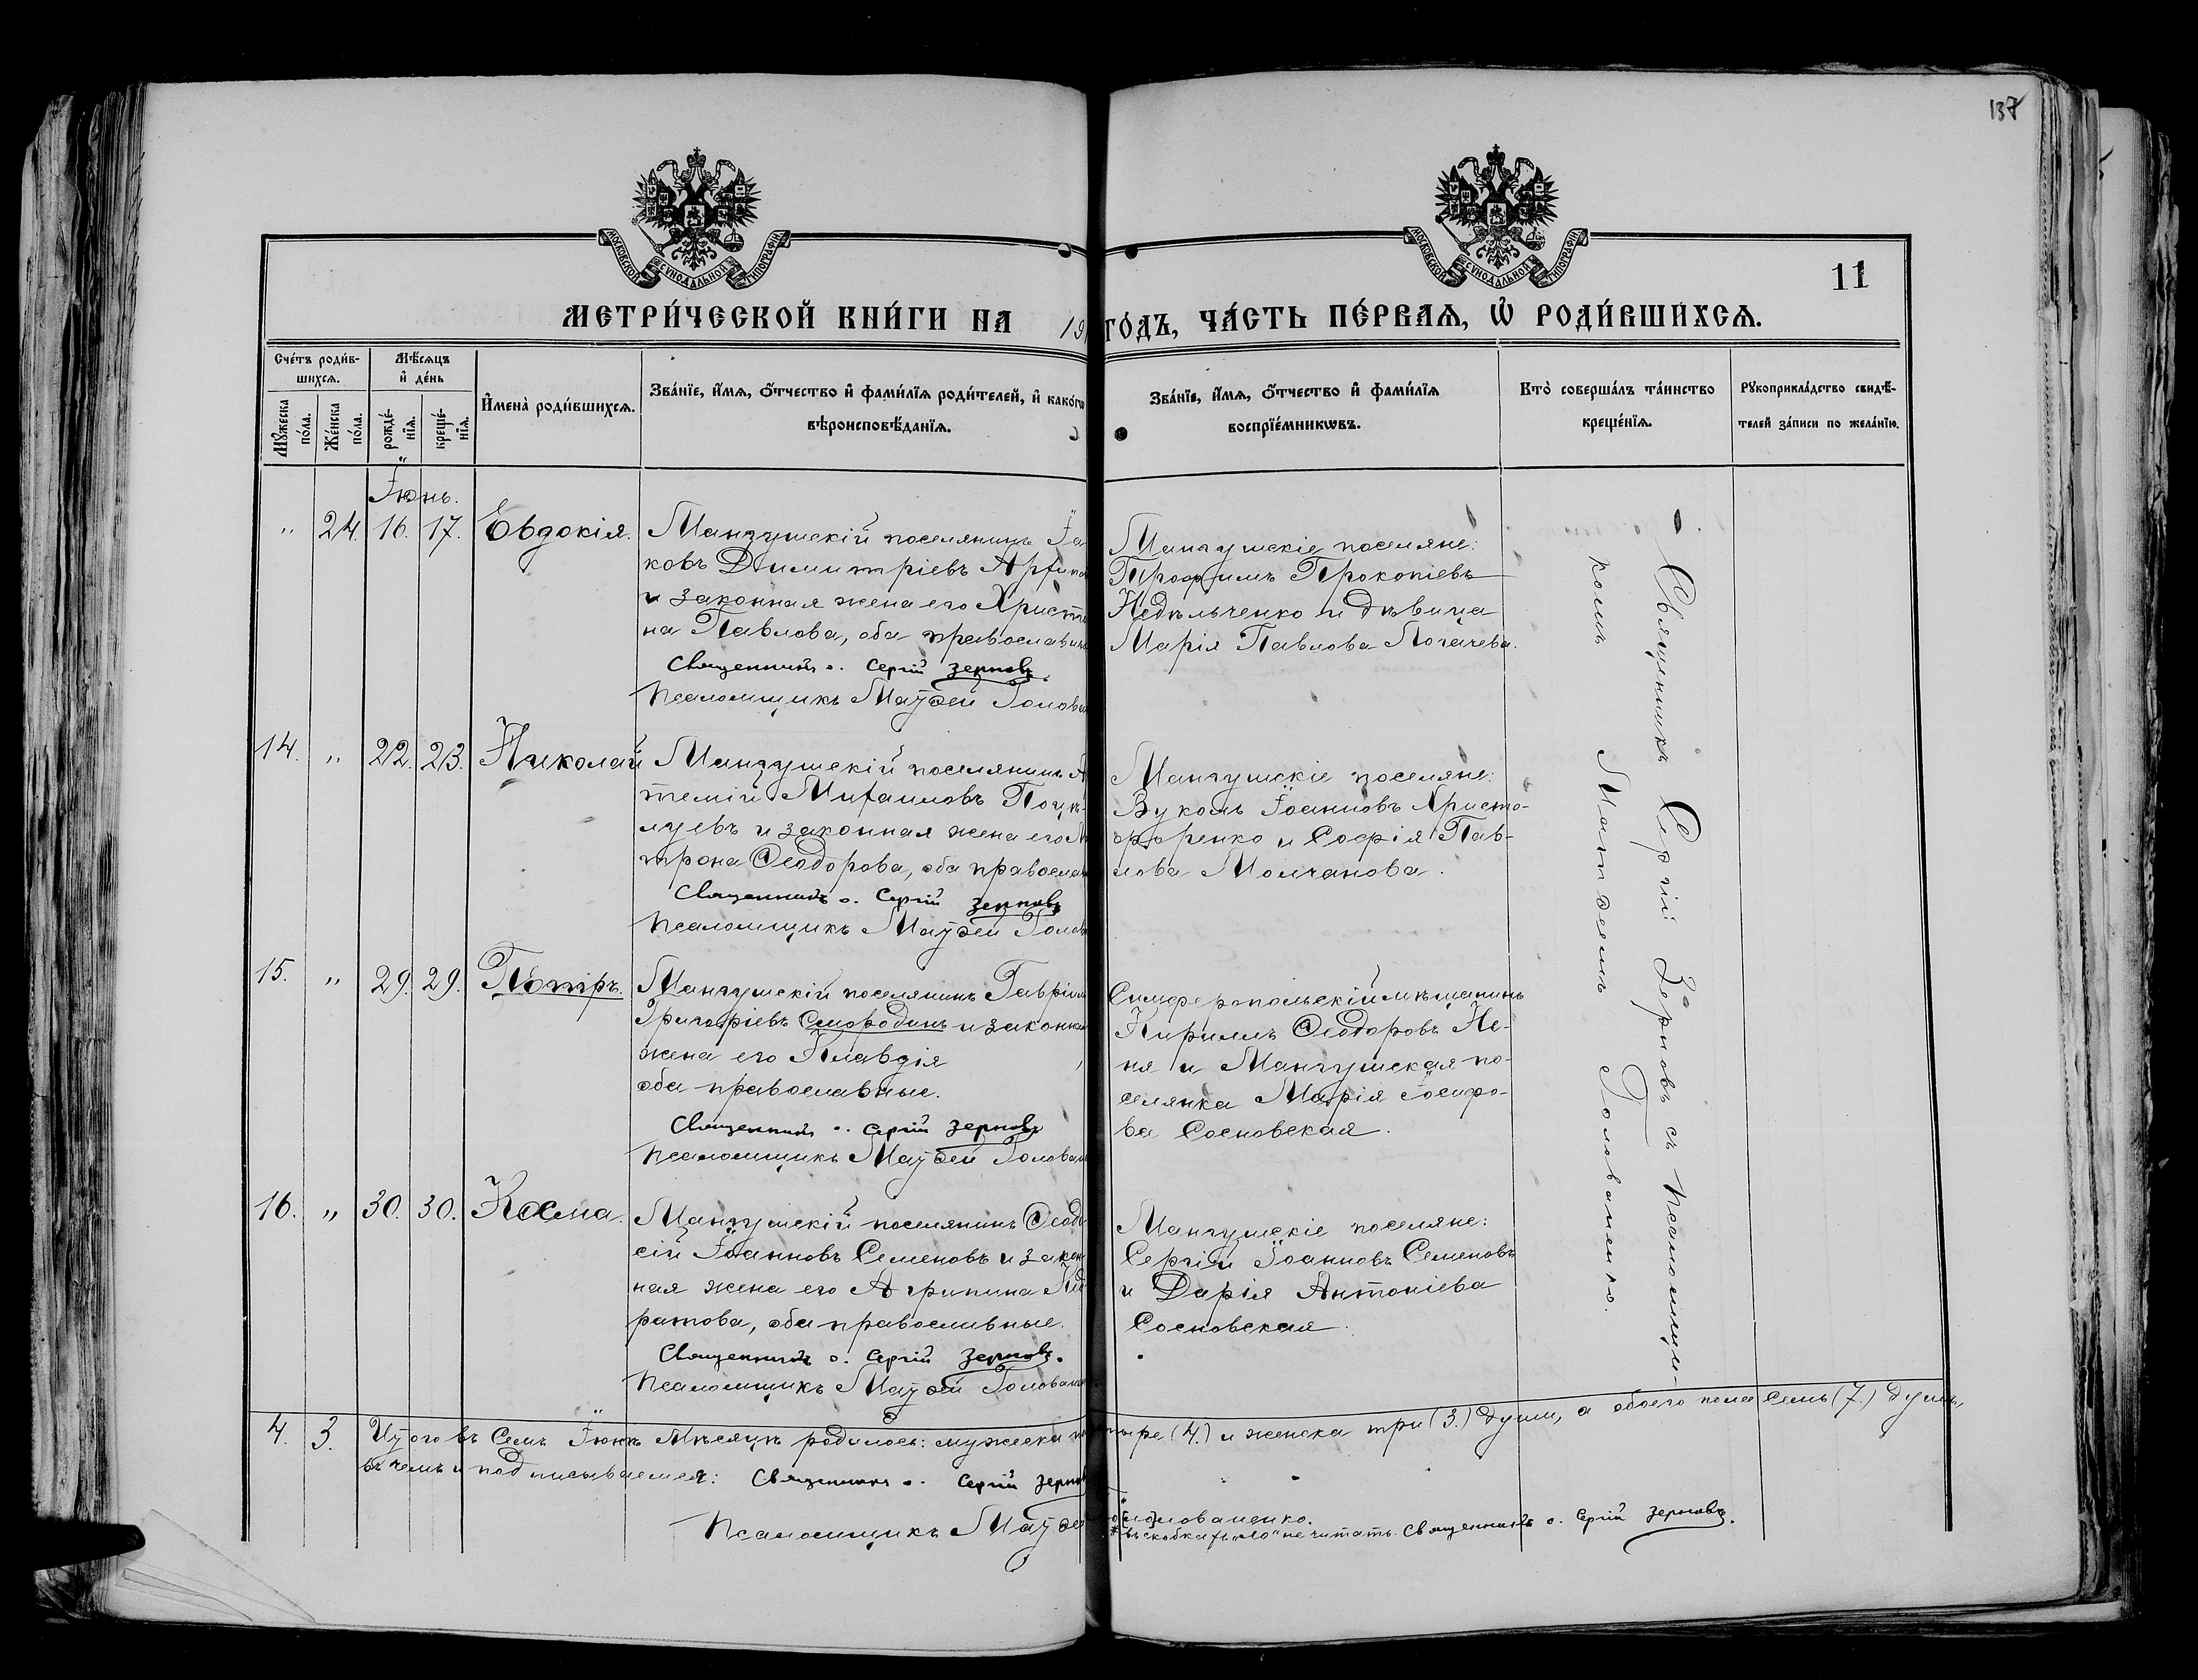 137
МОСКОВСКОЙ СѴНОДАЛЬНОЙ ТИПОГРАФІИ
МОСКОВСКОЙ СѴНОДАЛЬНОЙ ТИПОГРАФІИ
11
МЕТРИ́ЧЕСКОЙ КНИ́ГИ НА 19
ГО́ДЪ, ЧА́СТЬ ПЕ́РВАЯ, Ѡ РОДИ́ВШИХСЯ.
Сче́тъ роди́в-
шихся.
Мѣ́сяцъ
и де́нь
Мꙋ́жеска по́ла.
Же́нска по́ла.
рожде́-нїя.
креще́-нїя.
И҆мена̀ роди́вшихся.
Зва́нїе, и҆́мя, ѻ҆́тчество и҆ фами́лїя роди́телей, и҆ како́гѡ
вѣроисповѣ́данїя.
Зва́нїе, и҆́мя, ѻ҆́тчество и҆ фами́лїя
воспрїе́мникѡвъ.
Кто̀ соверша́лъ та́инство
креще́нїя.
Рꙋкоприкла́дство свидѣ́-
телей за́писи по жела́нїю.
Іюнь.
" 24. 16. 17. Евдокія.
Мангушскій поселянинъ Іа
ковъ Димитріевъ
и законная жена его Христи
на Павлова, оба православн
Священникъ о. Сергій Зерновъ.
Псаломщикъ Матѳей Голова
Мангушскіе поселяне:
Трофимъ Прокопіевъ
Недѣльченко и дѣвица
Марія Павлова Логачева.
Священникъ Сергій Зерновъ съ псаломщи-
комъ Матѳеемъ Голованенко.
14. " 22. 23. Николай
Мангушскій поселянинъ А
темій Михаиловъ Поцѣ-
луевъ и законная жена его М
трона Ѳеодорова, оба православ
Священникъ о. Сергій Зерновъ
Псаломщикъ Матѳей Голов
Мангушскіе поселяне:
Вуколъ Іоанновъ Христо-
форенко и Софія Пав-
лова Молчанова.
15. " 29. 29. Петръ.
Мангушскій поселянинъ Гавріил
Григоріевъ Смородинъ и законна
жена его Клавдія
оба православные.
Священникъ о. Сергій Зерновъ
Псаломщикъ Матѳей Голован
Симферопольскій мѣщанинъ
Кириллъ Ѳеодоровъ Не-
ня и Мангушская по-
селянка Марія Іосифо-
ва Сосновская.
16. " 30. 30. Косма.
Мангушскій поселянинъ Ѳеодо
сій Іоанновъ Семеновъ и закон
ная жена его Агрипина
ратова, оба православные.
Священникъ о. Сергій Зерновъ.
Псаломщикъ Матѳей Голован
Мангушскіе поселяне:
Сергій Іоанновъ Семеновъ
и Дарія Антоніева
Сосновская.
4. 3. Итого въ семъ Іюнѣ мѣсяцѣ родилось: мужеска по
тыре (4.) и женска три (3.) души, а обоего пола семь (7.) душъ,
въ чемъ и подписываемся: Священникъ о. Сергій Зернов
Псаломщикъ Матѳей
ованенко.
въ скобкахъ "ло" не читать. Священникъ о. Сергій Зерновъ.